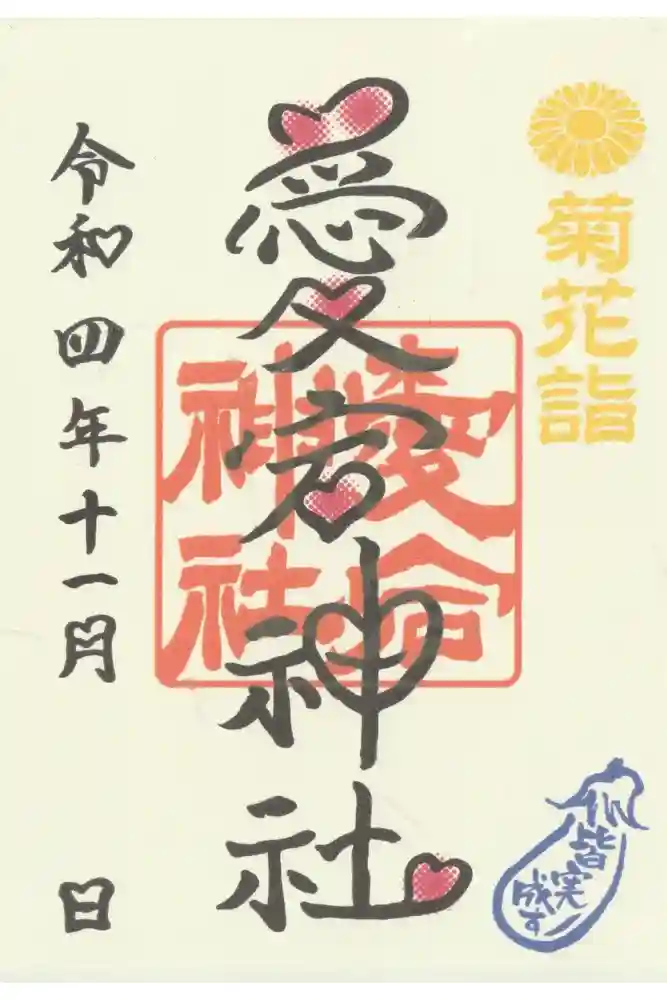 菊花詣
愛宕神社
愛宕
神社
令和四年十一月 日
皆
実
成す